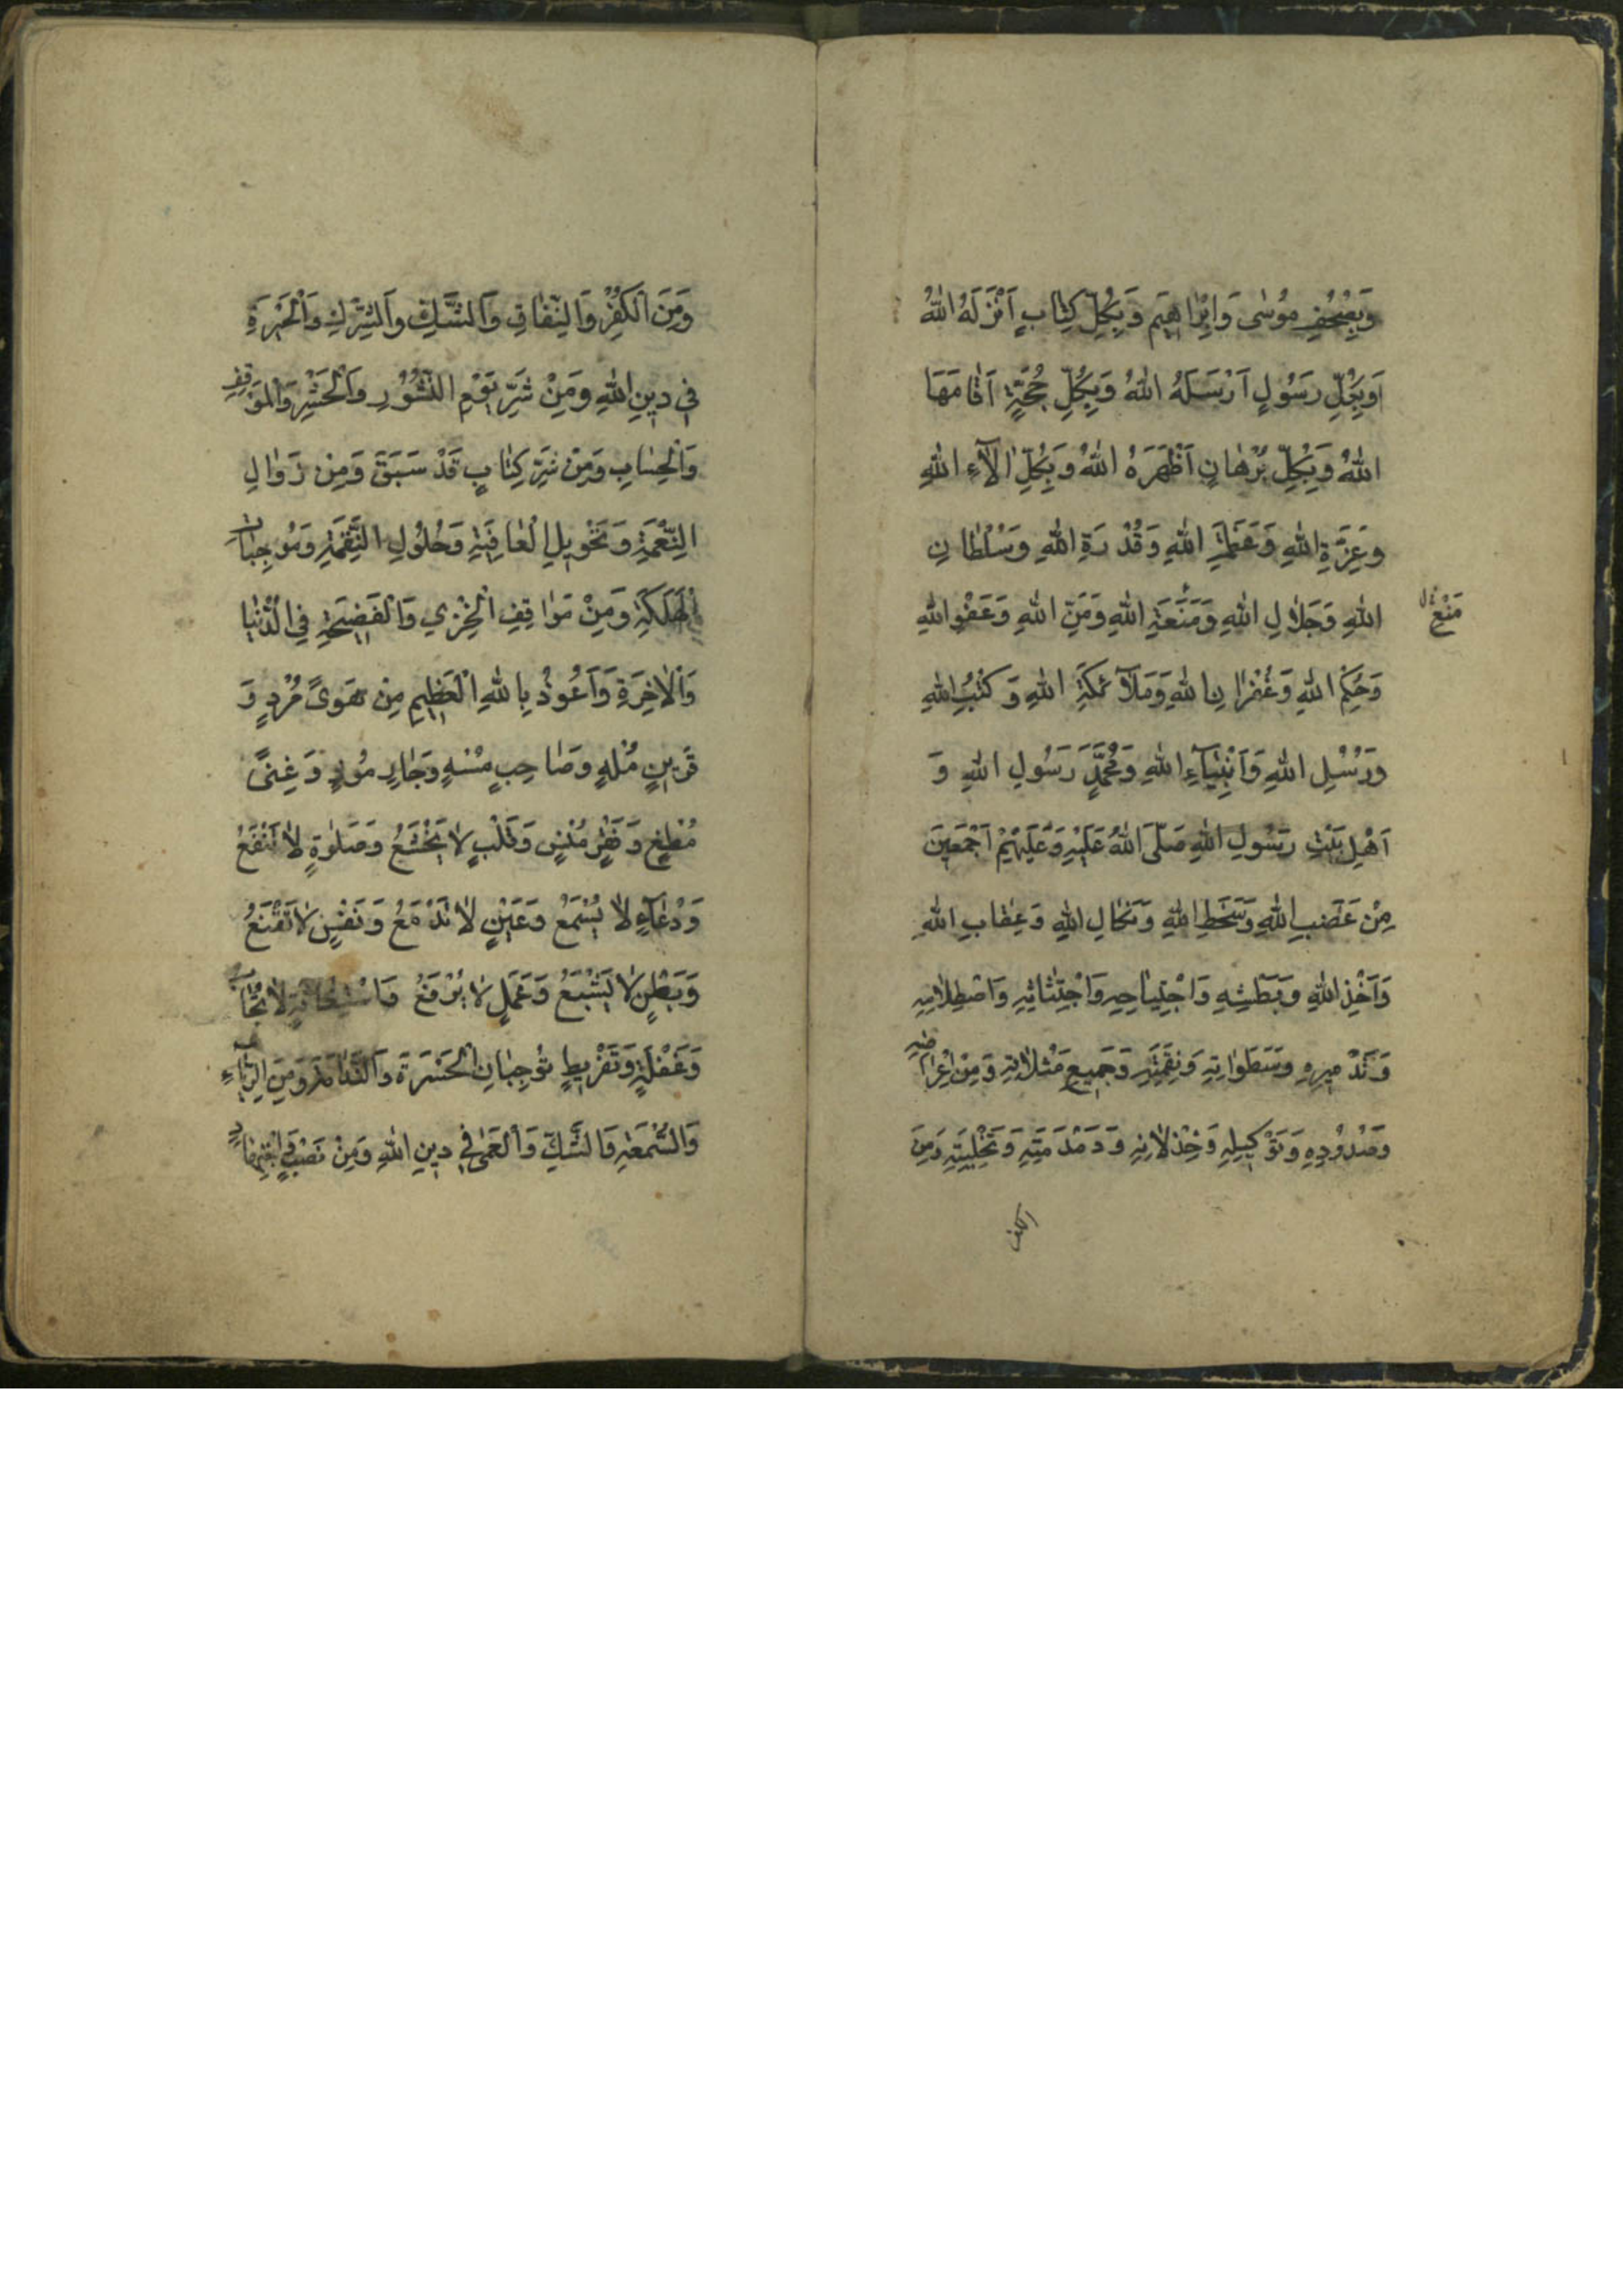 وَبِصُحُفِ مُوسٰى وَاِبْرٰاهِيمَ وَبِكُلِّ كِتٰابٍ اَنْزَلَهُ اللهُ
وَبِكُلِّ رَسُولٍ اَرْسَلَهُ اللهُ وَبِكُلِّ حُجَّةٍ اَقٰامَهَا
اللهُ وَبِكُلِّ بُرْهٰانٍ اَظْهَرَهُ اللهُ وَبِكُلِّ اٰلآءِ اللهِ
وَعِزَّةِ اللهِ وَعَظَمَةِ اللهِ وَقُدْرَةِ اللهِ وَسُلْطٰانِ
اللهِ وَجَلاٰلِ اللهِ وَمَنْعَةِ اللهِ وَمَنِّ اللهِ وَعَفْوِ اللهِ
مَنْعِ
وَحِكَمِ اللهِ وَغُفْرٰانِ اللهِ وَمَلآئِكَةِ اللهِ وَكُتُبِ اللهِ
وَرُسُلِ اللهِ وَاَنْبِيٰآءِ اللهِ وَمُحَمَّدٍ رَسُولِ اللهِ وَ
اَهْلِ بَيْتِ رَسُولِ اللهِ صَلَّى اللهُ عَلَيْهِ وَعَلَيْهِمْ اَجْمَعِينَ
مِنْ غَضَبِ اللهِ وَسَخَطِ اللهِ وَنَكٰالِ اللهِ وَعِقٰابِ اللهِ
وَاَخْذِ اللهِ وَبَطْشِهِ وَاجْتِيٰاحِهِ وَاجْتِثٰاثِهِ وَاصْطِلاٰمِهِ
وَتَدْمِيرِهِ وَسَطَوٰاتِهِ وَنِقْمَتِهِ وَجَمِيعِ مَثُلاٰتِهِ وَمِنْ اِعْرٰاضِهِ
وَصُدُودِهِ وَتَوْكِيلِهِ وَخِذْلاٰنِهِ وَدَمْدَمَتِهِ وَتَخْلِيَتِهِ وَمِنَ
الكفر
وَمِنَ الْكُفْرِ وَالنِّفٰاقِ وَالشَّكِّ وَالشِّرْكِ وَالْحَيْرَةِ
فِي دِينِ اللهِ وَمِنْ شَرِّ يَوْمِ النُّشُورِ وَالْحَشْرِ وَالْمَوْقِفِ
وَالْحِسٰابِ وَمِنْ شَرِّ كِتٰابٍ قَدْ سَبَقَ وَمِنْ زَوٰالِ
النِّعْمَةِ وَتَحْوِيلِ الْعٰافِيَةِ وَحُلُولِ النَّقِمَةِ وَمُوجِبٰاتِ
الْهَلَكَةِ وَمِنْ مَوٰاقِفِ الْخِزْيِ وَالْفَضِيحَةِ فِي الدُّنْيٰا
وَالْاٰخِرَةِ وَاَعُوذُ بِاللهِ الْعَظِيمِ مِنْ هَوىً مُرْدٍ وَ
قَرِينٍ مُلْهٍ وَصٰاحِبٍ مُسْهٍ وَجٰارٍ مُوذٍ وَغِنىً
مُطْغٍ وَفَقْرٍ مُنْسٍ وَقَلْبٍ لاٰ يَخْشَعُ وَصَلوٰةٍ لاٰ تَنْفَعُ
وَدُعٰآءٍ لاٰ يُسْمَعُ وَعَيْنٍ لاٰ تَدْمَعُ وَنَفْسٍ لاٰ تَقْنَعُ
وَبَطْنٍ لاٰ يَشْبَعُ وَعَمَلٍ لاٰ يُرْفَعُ لاٰ تُجٰابُ
وَغَفْلَةٍ وَتَفْرِيطٍ تُوجِبٰانِ الْحَسْرَةَ وَالنَّدٰامَةَ وَمِنَ الرِّيٰآءِ
وَالسُّمْعَةِ وَالشَّكِّ وَالْعَمٰى فِي دِينِ اللهِ وَمِنْ نَصَبٍ وَاجْتِهٰادٍ